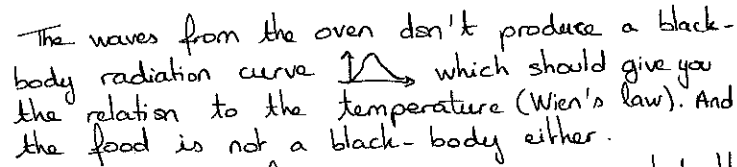 The waves from the oven don't produce a black-
body radiation curve which should give you
the relation to the temperature (Wien's law). And
the food is not a black-body either.